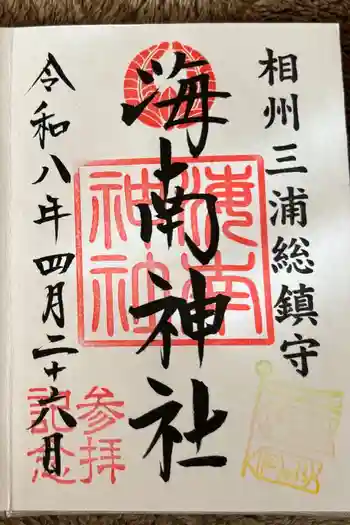 相州三浦総鎮守
海南神社
海南神社
参拝記念
令和八年四月二十六日